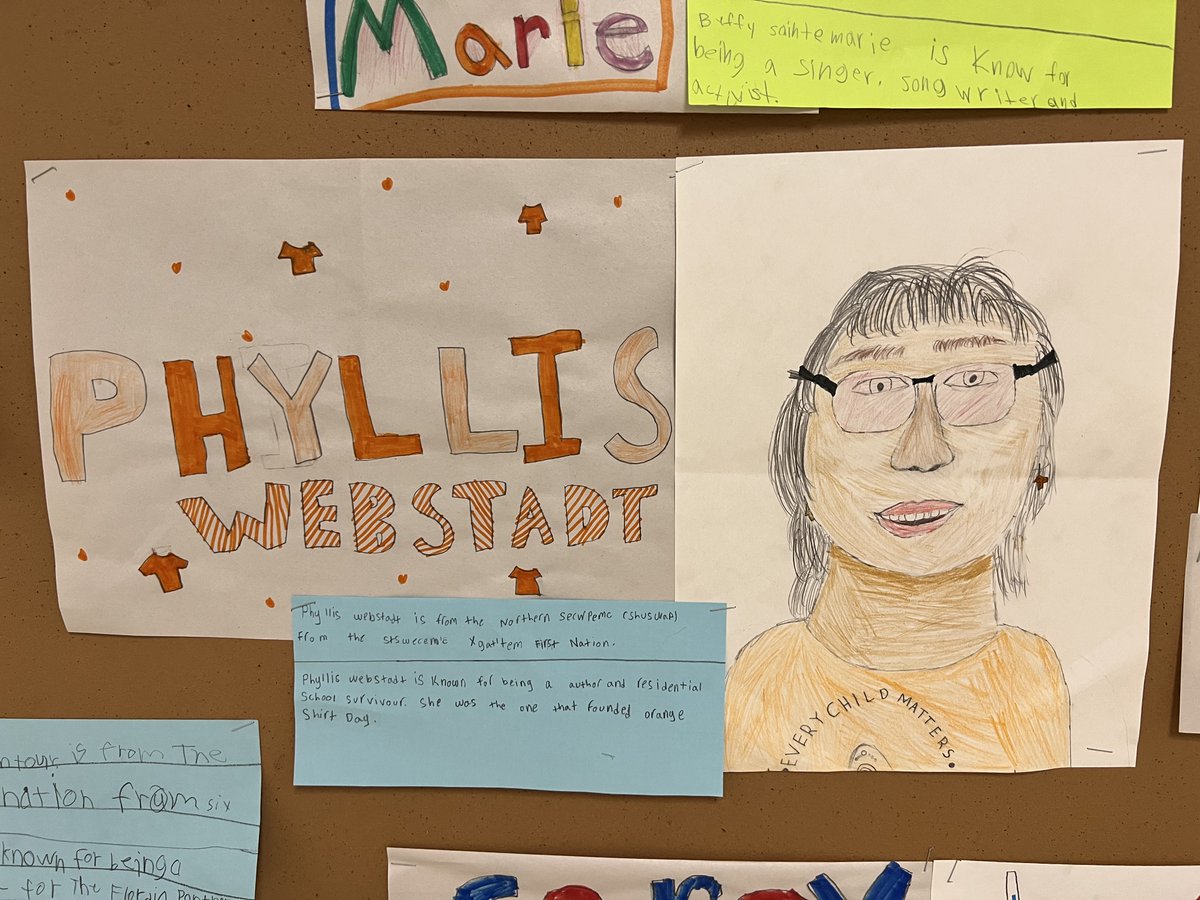 Marie
Buffy saintemarie is Know for
being a singer, song writer and
activist.
PHYLLIS
WEBSTADT
Phyllis webstadt is from the Northern Secwpemc (Shuswap)
from the Stswecem'c Xgat'tem First Nation.
Phyllis webstadt is Known for being a author and residential
School survivour. She was the one that founded orange
Shirt Day.
•EVERY CHILD MATTERS•
is from The
nation from six
known for being a
for The Floridn